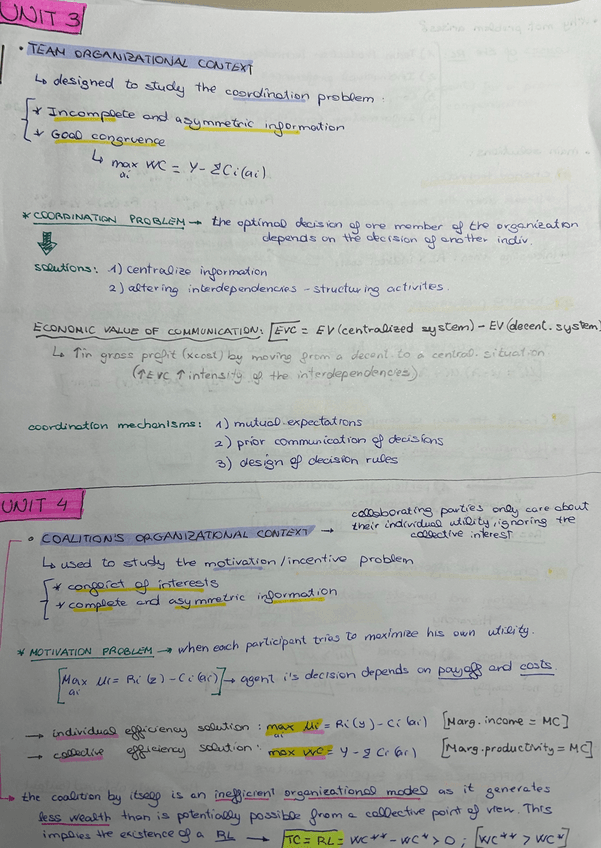 UNIT 3
• TEAM ORGANIZATIONAL CONTEXT
↳ designed to study the coordination problem.
* Incomplete and asymmetric information
* Goal congruence
↳ max WC = Y - ΣCi(ai)
ai
* COORDINATION PROBLEM → the optimal decision of one member of the organization
depends on the decision of another indiv.
solutions: 1) centralize information
2) altering interdependencies - structuring activities.
ECONOMIC VALUE OF COMMUNICATION: EVC = EV(centralized system) - EV(decent. system)
↳ ↑in gross profit (xcost) by moving from a decent. to a central. situation
(↑EVC ↑intensity of the interdependencies)
coordination mechanisms: 1) mutual expectations
2) prior communication of decisions
3) design of decision rules
UNIT 4
• COALITION'S ORGANIZATIONAL CONTEXT → collaborating parties only care about
their individual utility, ignoring the
collective interest
↳ used to study the motivation/incentive problem
* conflict of interests
* complete and asymmetric information
* MOTIVATION PROBLEM → when each participant tries to maximize his own utility.
[Max Ui = Ri(z) - Ci(ai)] → agent i's decision depends on payoff and costs
ai
→ individual efficiency solution: max Ui = Ri(y) - Ci(ai) [Marg. income = MC]
ai
→ collective efficiency solution: max WC = Y - ΣCi(ai) [Marg. productivity = MC]
→ the coalition by itself is an inefficient organizational model as it generates
less wealth than is potentially possible from a collective point of view. This
implies the existence of a RL → TC = RL = WC** - WC* > 0; [WC** > WC*]